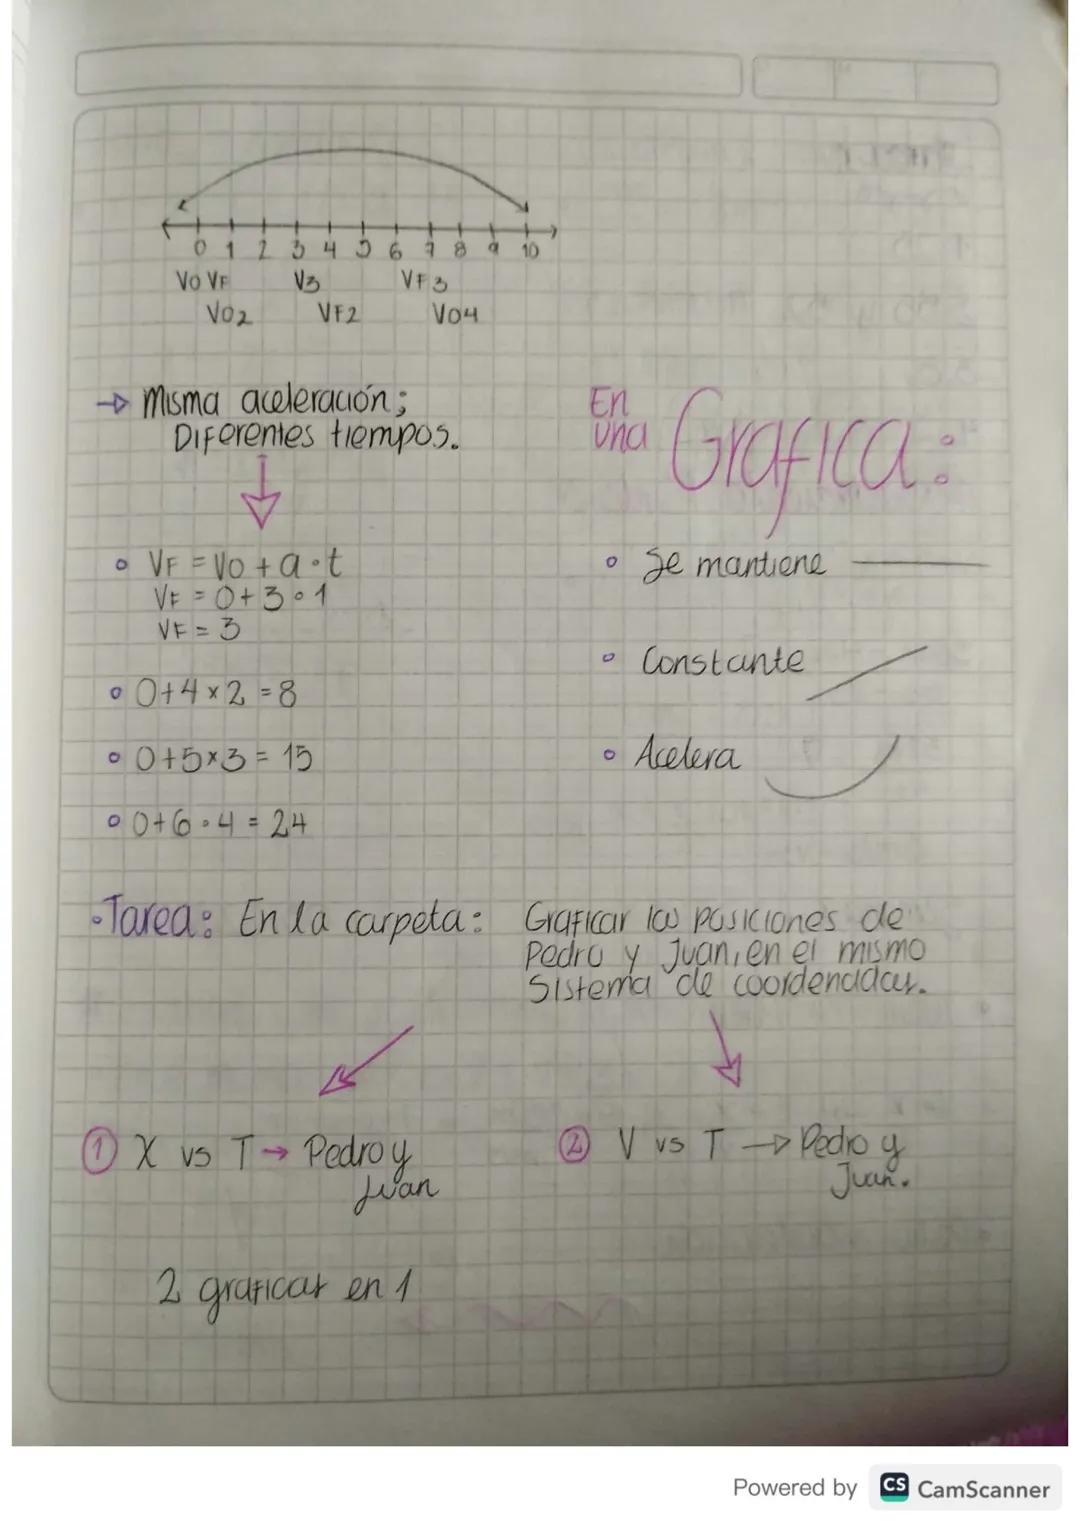 0 1 2 3 4 5 6 7 8 9 10
VO VF V3 VF3
VO2 VF2 VO4
→ Misma aceleración;
Diferentes tiempos.
En
una Grafica:
• VF = VO + a · t
VF = 0 + 3 · 1
VF = 3
• 0+4 x 2 = 8
• 0+5x3 = 15
• 0+6 · 4 = 24
• Se mantiene
• Constante
• Acelera
• Tarea: En la carpeta: Graficar las posiciones de
Pedro y Juan, en el mismo
Sistema de coordenadas.
① X vs T → Pedro y
Juan
② V vs T → Pedro y
Juan.
2 graficas en 1
Powered by CS CamScanner